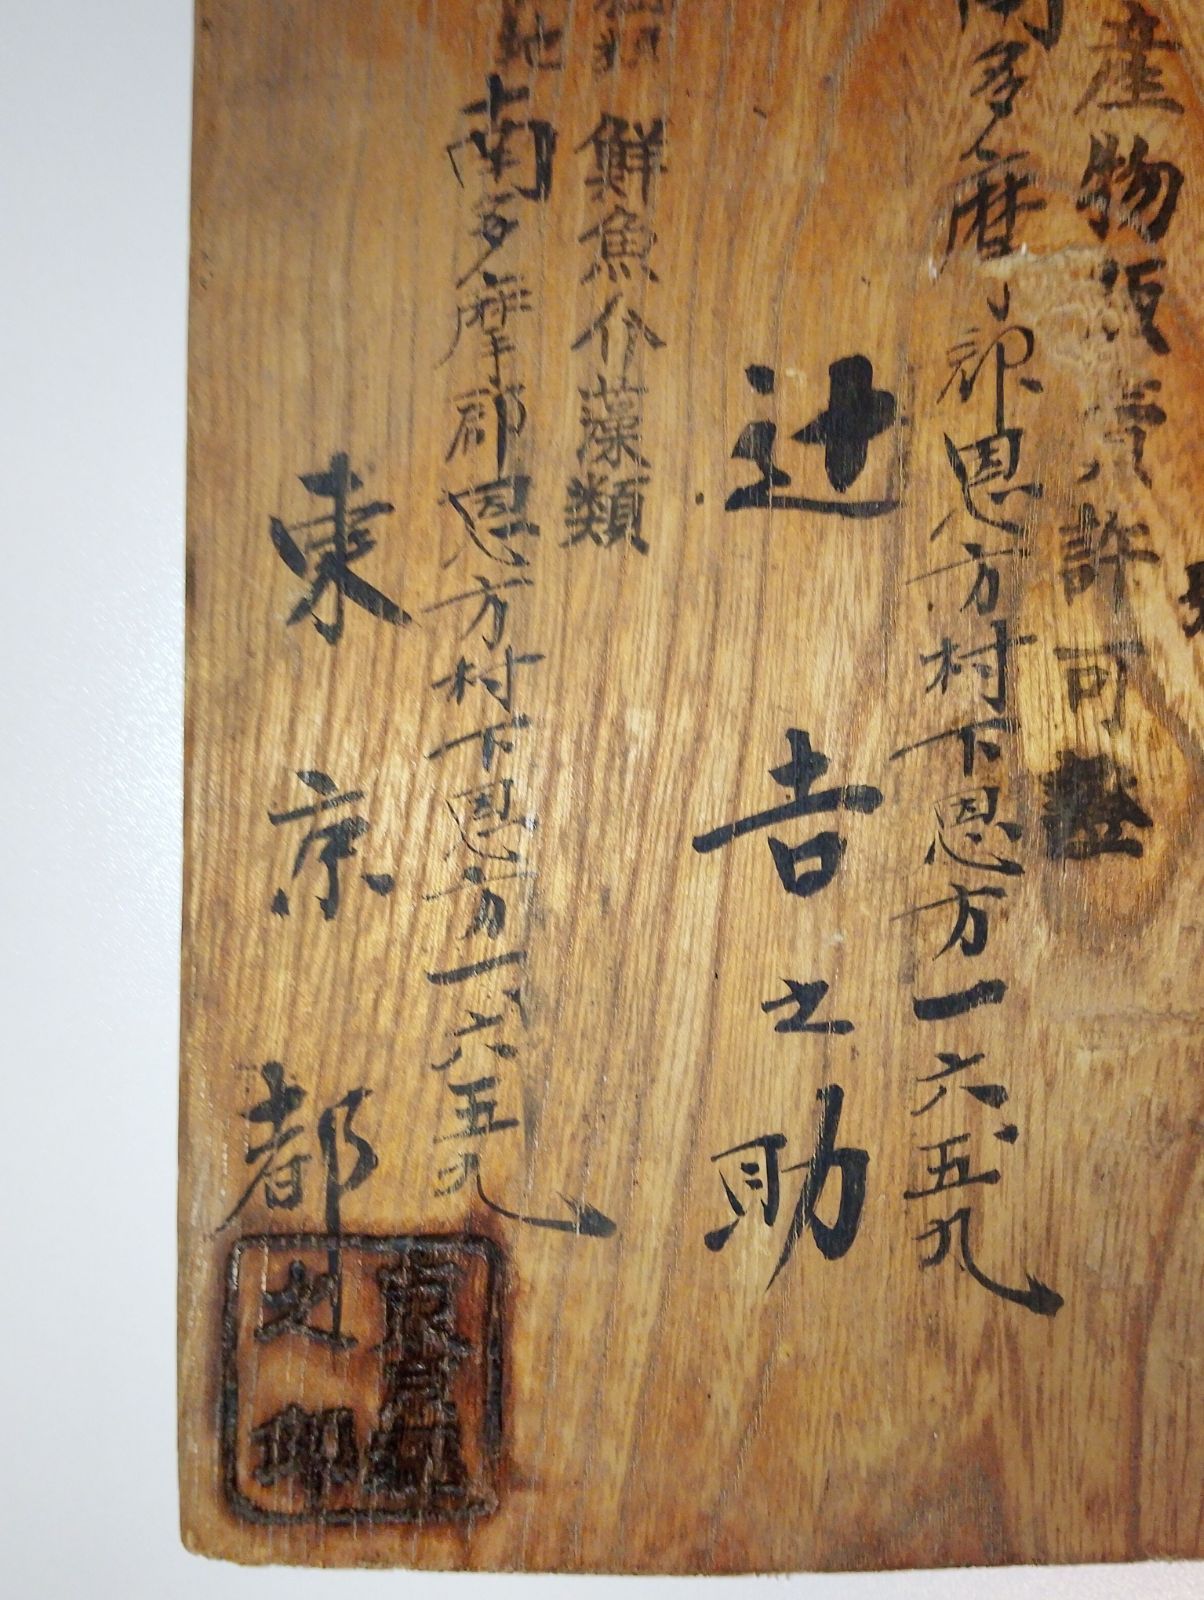 産物販賣許可證
南多摩郡恩方村下恩方一六五九
辻吉之助
鮮魚介藻類
地
南多摩郡恩方村下恩方一六五九
東京都
東京都
之印